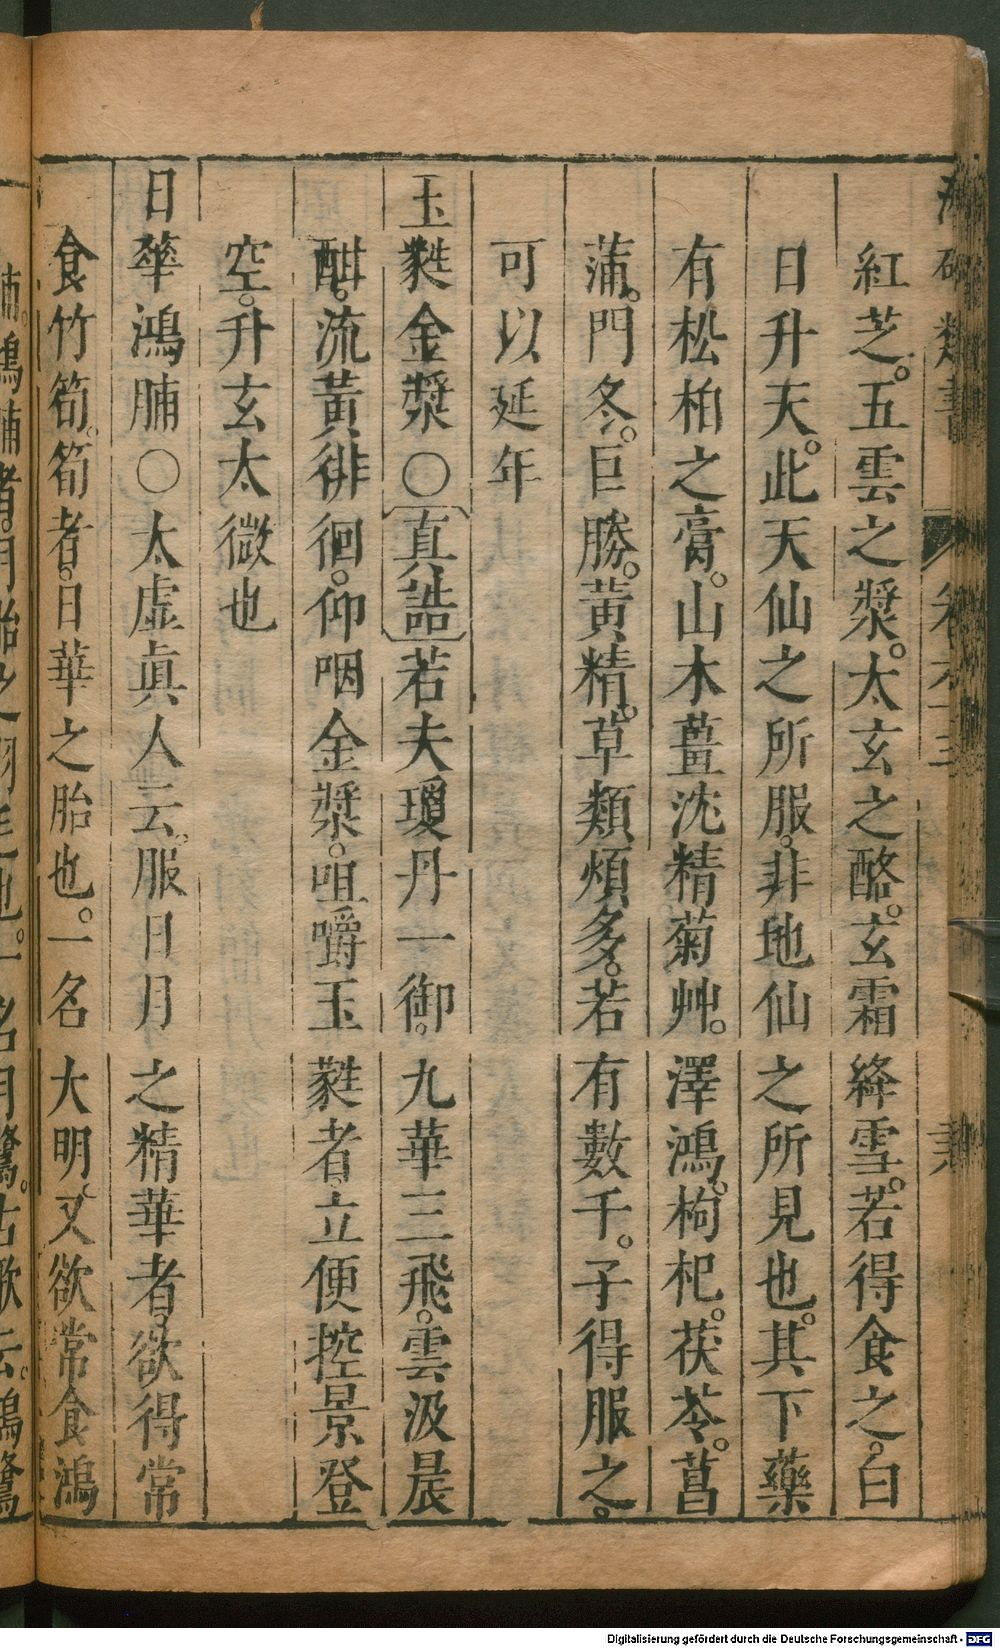 類書
紅芝。五雲之漿。太玄之酪。玄霜絳雪。若得食之。白
日升天。此天仙之所服。非地仙之所見也。其下藥
有松柏之膏。山木薑沈精菊艸。澤鴻。枸杞。茯苓。菖
蒲。門冬。巨勝。黃精。草類煩多。若有數千。子得服之。
可以延年
玉蕤金漿○〔真誥〕若夫瓊丹一御。九華三飛。雲汲晨
酣。流黃徘徊。仰咽金漿。咀嚼玉蕤者。立便控景登
空。升玄太微也
日華鴻脯○太虛真人云。服日月之精華者。欲得常
食竹筍。筍者。日華之胎也。一名大明。又欲常食鴻
脯。鴻脯者。月胎之羽毛也。一名月鷺。古歌云。鴻鷺
Digitalisierung gefördert durch die Deutsche Forschungsgemeinschaft - DFG